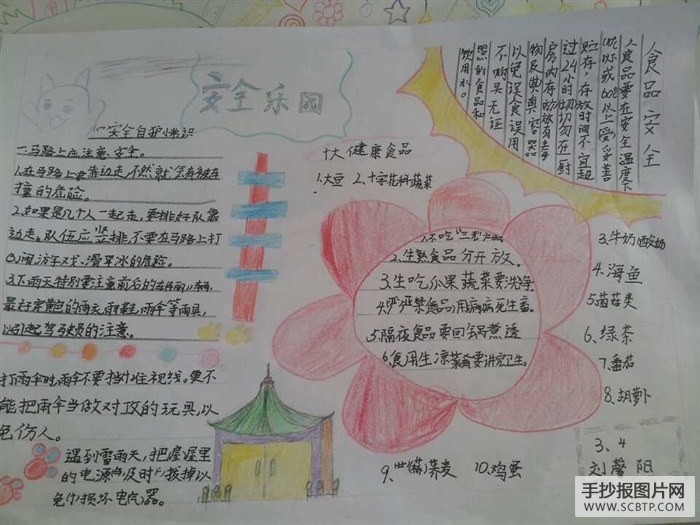 安全乐园
安全自护小常识
一、马路上应注意安全。
1.在马路上要靠边走,不然就会有被车
撞的危险。
2.如果是几个人一起走,要排好队靠
边走,队伍应竖排,不要在马路上打
闹,游手戏、滑旱冰的危险。
3.下雨天特别要注意前后的车辆,
最好穿颜色的雨天、雨鞋、雨伞等雨具,
以引起驾驶员的注意。
打雨伞时,雨伞不要挡住视线。更不
能把雨伞当做对攻的玩具,以
免伤人。
遇到雷雨天,把屋屋里
的电源应及时拔掉以
免损坏电器。
十大健康食品
1.大豆 2.十字花科蔬菜
3.牛奶酸奶
4.海鱼
5.菌菇类
6.绿茶
7.番茄
8.胡萝卜
9. 荞麦 10.鸡蛋
2.生熟食品分开放。
3.生吃瓜果蔬菜要洗净
4.严禁食品用病病死生畜。
5.隔夜食品要回锅煮透
6.食用生凉菜肴要讲究卫生。
食品安全
食品要在安全温度下
或60以上受妥善
贮存,存放时间不宜超
过24小时切勿在厨
房内存放有毒
物及其真容器
以免误食误用
不购买无证
的食品和
饮用水。
3、4
刘馨阳
手抄报图片网
WWW.SCBTP.COM